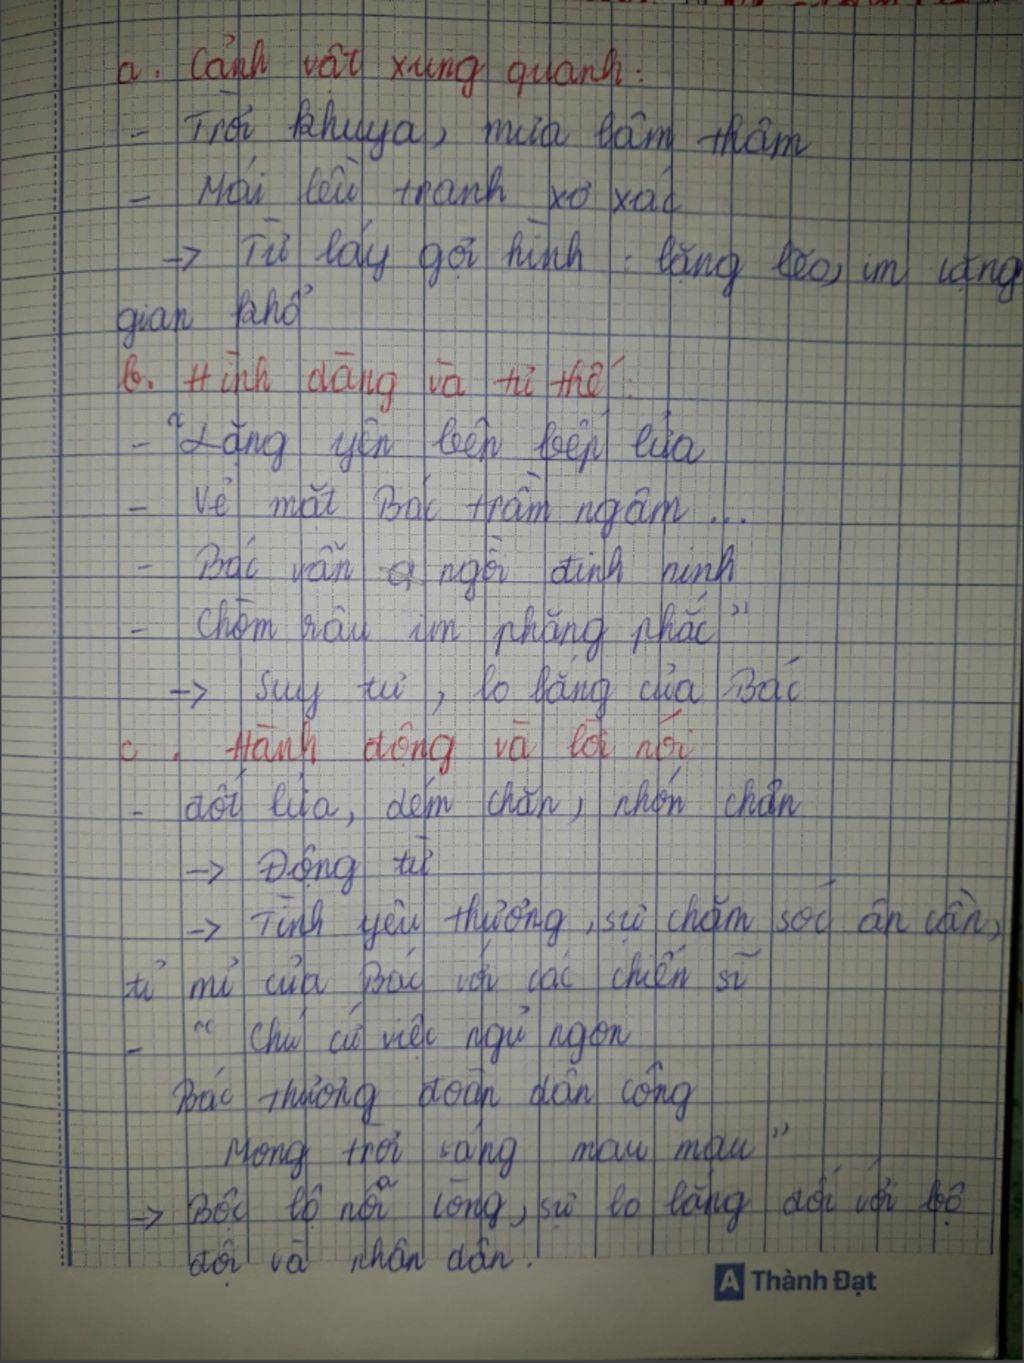 a. Cảnh vật xung quanh:
- Trời khuya, mưa lâm thâm
- Mái lều tranh xơ xác
-> Từ láy gợi hình : lặng lẽo, im vắng
gian khổ
b. Hình dáng và tư thế :
- "Lặng yên bên bếp lửa
- Vẻ mặt Bác trầm ngâm ...
- Bác vẫn ngồi đinh ninh
- Chòm râu im phăng phắc"
-> Suy tư, lo lắng của Bác
c. Hành động và lời nói
- đốt lửa, dém chăn, nhón chân
-> Động từ
-> Tình yêu thương, sự chăm sóc ân cần,
tỉ mỉ của Bác với các chiến sĩ
- " Chú cứ việc ngủ ngon
Bác thương đoàn dân công
Mong trời sáng mau mau"
-> Bộc lộ nỗi lòng, sự lo lắng đối với bộ
đội và nhân dân.
A Thành Đạt